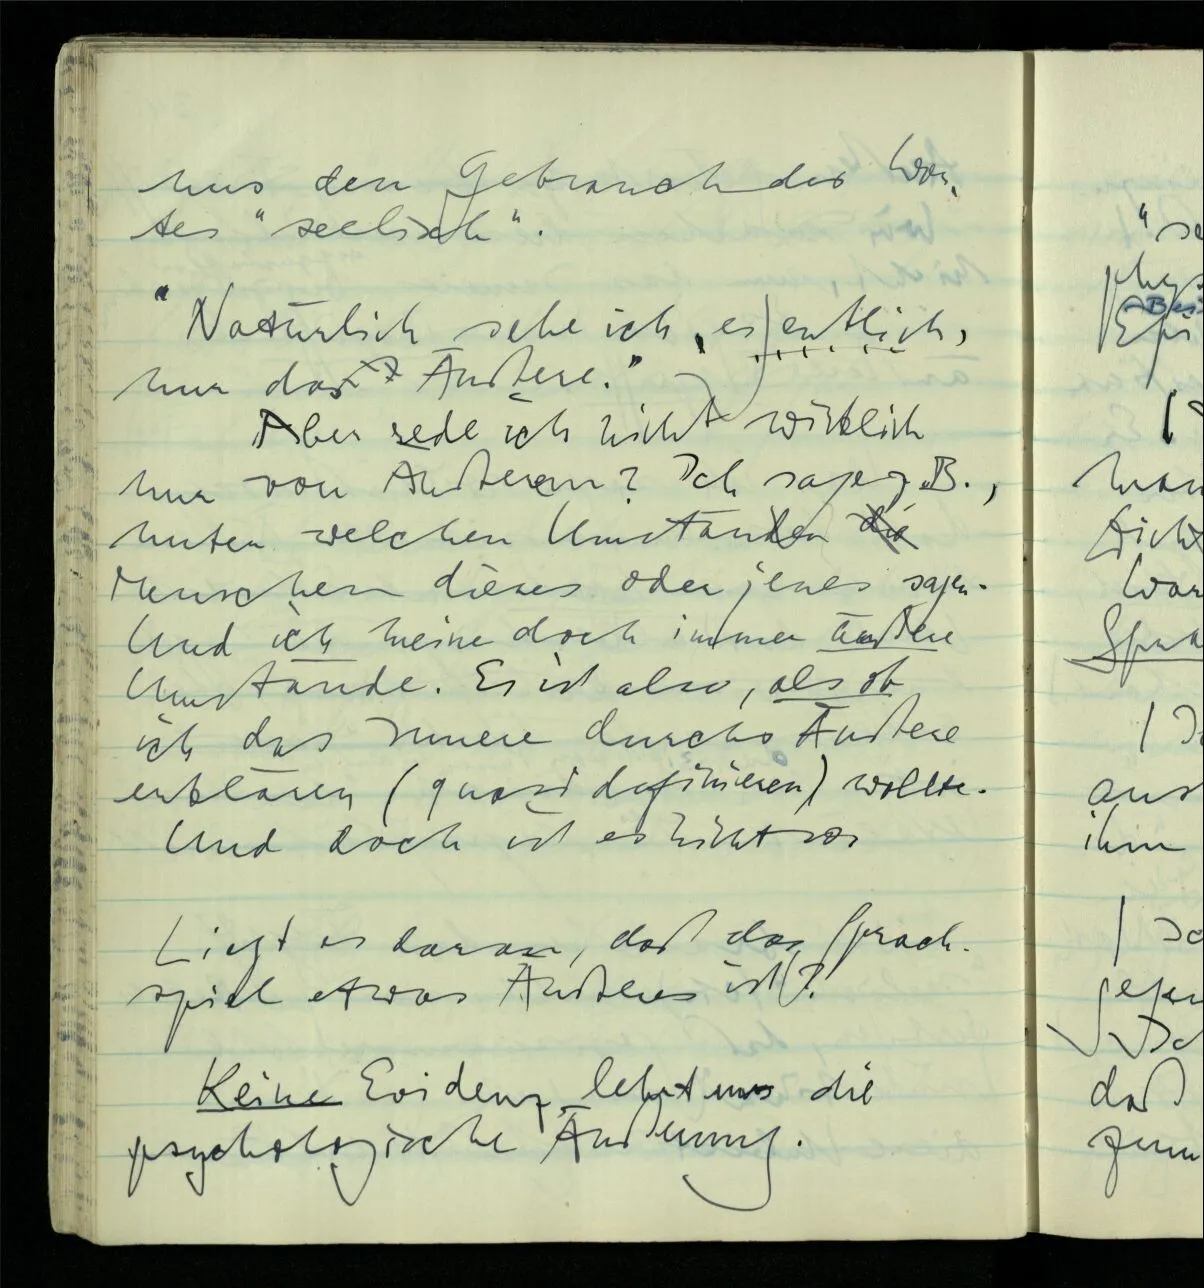 uns den Gebrauch des Wor-
tes "seelisch".
"Natürlich sehe ich, eigentlich,
nur das Äußere."
Aber rede ich nicht wirklich
nur von Äußerem? Ich sage, z.B.,
unter welchen Umständen die
Menschen dieses oder jenes sagen.
Und ich meine doch immer äußere
Umstände. Es ist also, als ob
ich das Innere durchs Äußere
erklären (quasi definieren) wollte.
Und doch ist es nicht so.
Liegt es daran, daß das Sprach-
spiel etwas Äußeres ist?
Keine Evidenz lehrt uns die
psychologische Äußerung.
"se
man
aus
ihm
daß